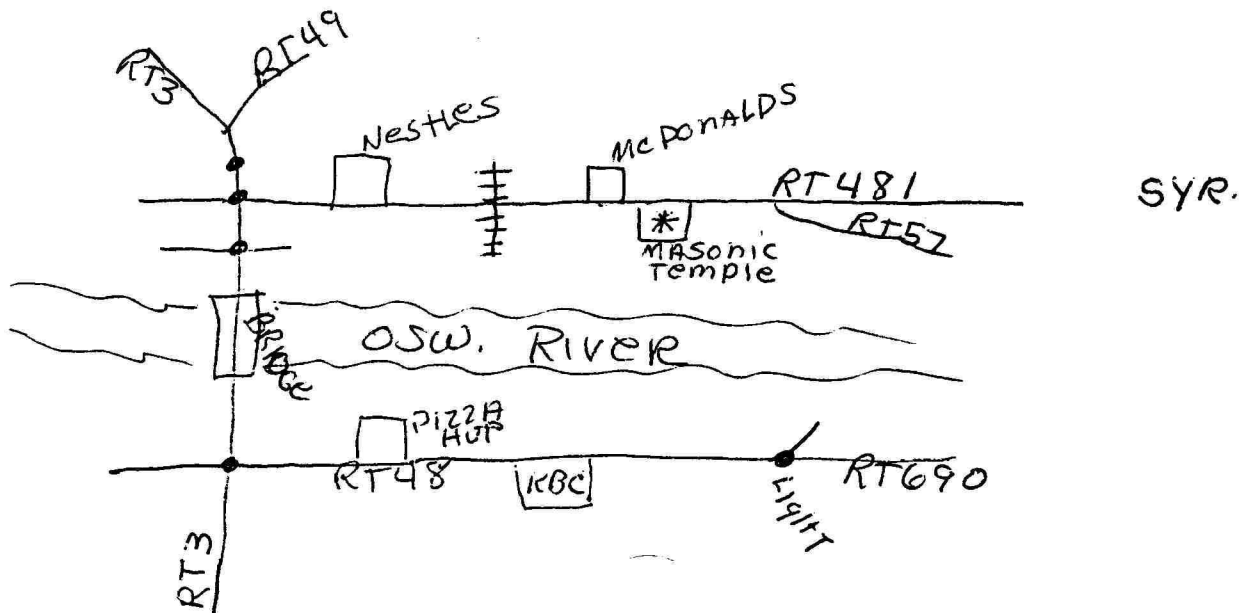 RT3
RT49
NestLes
McDONALDS
RT481
SYR.
RT57
MASonic
Temple
BRIDGE
OSW. RIVeR
PIZZA
HUT
RT48
KBC
LIGHT
RT690
RT3